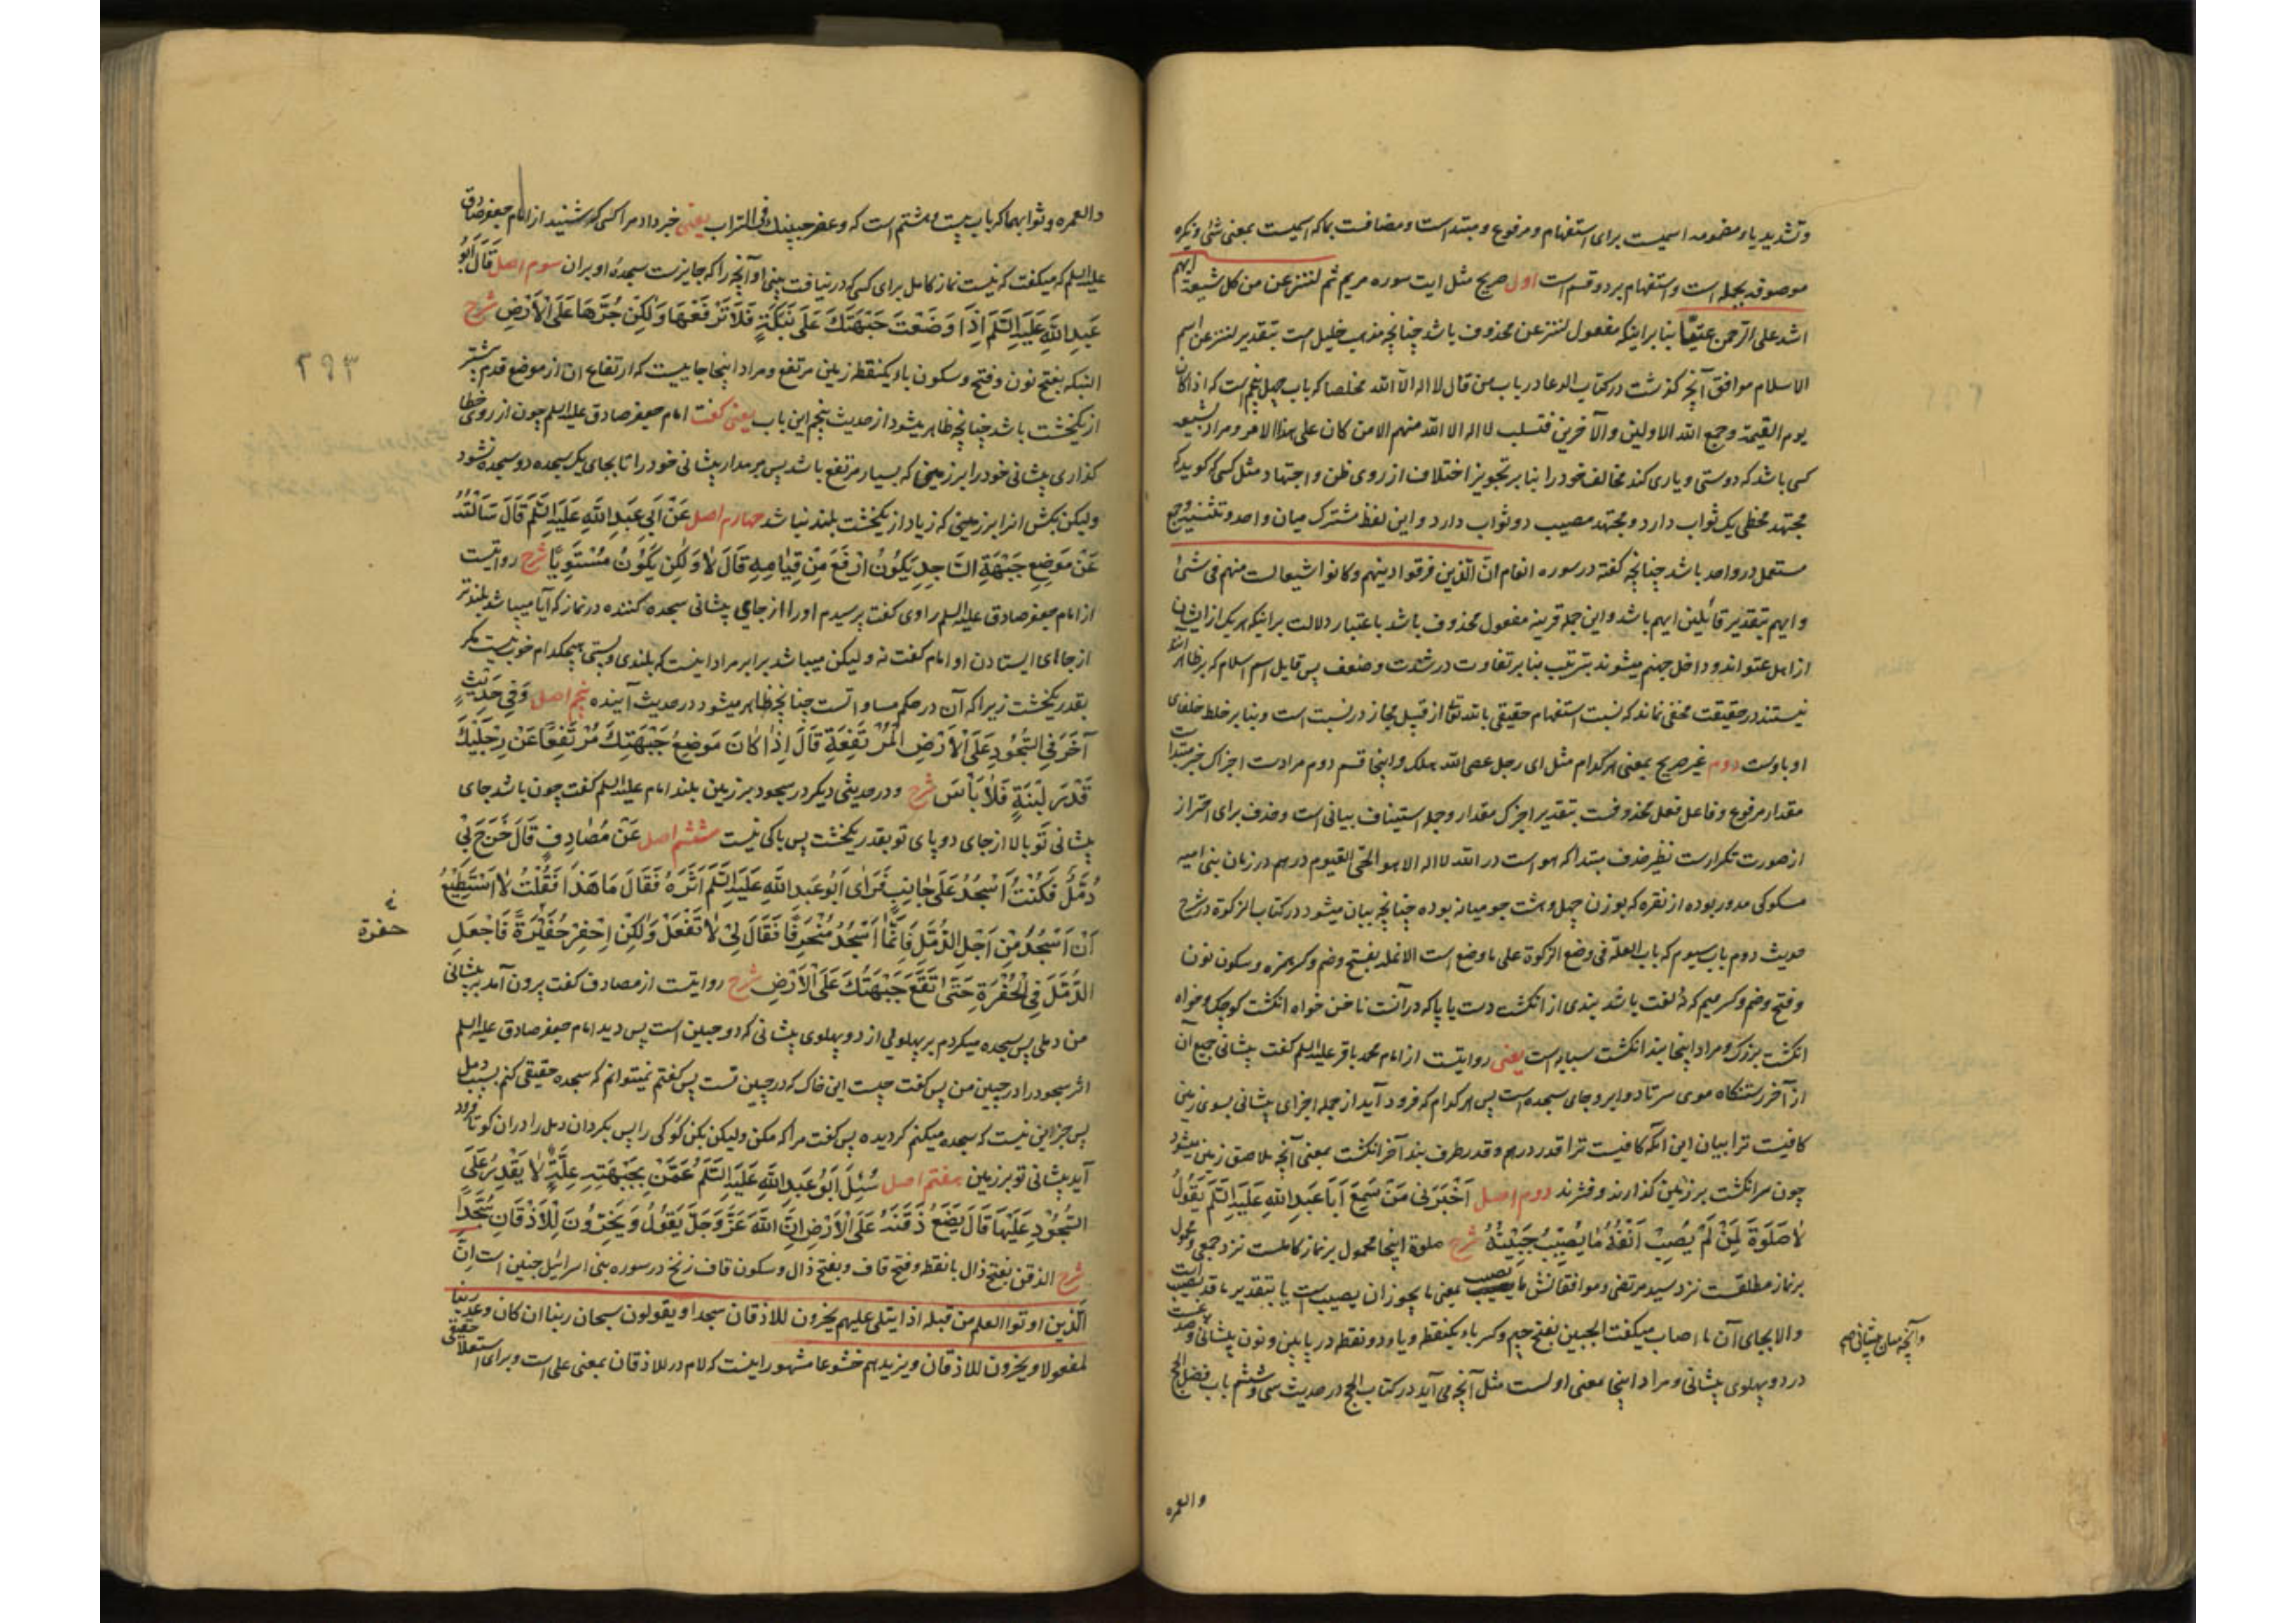 وتشدید یاء مضمومه اسمیست برای استفهام ومرفوع ومبتداست ومضافست بماکه اسمیست بمعنی شئ ونکره
موصوفه بجمله است واستفهام بر دو قسم است اول صریح مثل ایت سوره مریم ثم لننزعن من کل شیعة ایهم
اشد علی الرحمن عتیّا بنا بر اینکه مفعول لننزعن محذوف باشد چنانچه مذهب خلیل است بتقدیر لننزعن اسم
الاسلام موافق آنچه گذشت در کتاب الدعا در باب من قال لا اله الا الله مخلصا که باب چهل پنجم است که اذا کان
یوم القیمة وجمع الله الاولین والآخرین فتسلب لا اله الا الله منهم الا من کان علی هذا الامر ومراد بشیعه
کسی باشد که دوستی ویاری کند مخالف خود را بنا بر تجویز اختلاف از روی ظن واجتهاد مثل کسی که گوید که
مجتهد مخطی یک ثواب دارد ومجتهد مصیب دو ثواب دارد واین لفظ مشترک میان واحد وتثنیه وجمع
مستعمل در واحد باشد چنانچه گفته در سوره انعام ان الذین فرقوا دینهم وکانوا شیعا لست منهم فی شئ
وایهم بتقدیر قائلین ایهم باشد واین جمله قرینه مفعول محذوف باشد باعتبار دلالت بر اینکه هر یک از ایشان
از اهل عتو اند وداخل جهنم میشوند بترتیب بنا بر تفاوت در شدت وضعف پس قابل اسم اسلام که بر ظاهر
نیستند در حقیقت مخفی نماند که نسبت استفهام حقیقی بالله تعالی از قبیل مجاز در نسبت است وبنا بر خلط خلفای
او باوست دوم غیر صریح بمعنی هر کدام مثل ای رجل عصی الله یهلک واینجا قسم دوم مرادست اجزاک خبر مبتداست
مقدار مرفوع وفاعل فعل محذوفست بتقدیر اجزک مقدار وجمله استیناف بیانی است وحذف برای احتراز
از صورت تکرارست نظیر حذف مبتدا که هو است در الله لا اله الا هو الحی القیوم درهم در زمان بنی امیه
مسکوکی مدور بوده از نقره که بوزن چهل وهشت جو میانه بوده چنانچه بیان میشود در کتاب الزکوة در شرح
حدیث دوم باب سیوم که باب العلة فی وضع الزکوة علی ما وضع است الانمله بفتح وضم وکسر همزه وسکون نون
وفتح وضم وکسر میم که نُه لغت باشد بندی از انگشت دست یا پا که در آنست ناخن خواه انگشت کوچک وخواه
انگشت بزرک ومراد اینجا بند انگشت سبابه است یعنی روایتست از امام محمد باقر علیه السلم گفت پیشانی جمیع آن
از آخر رستنگاه موی سر تا دو ابرو جای سجده است پس هر کدام که فرود آید از جمله اجزای پیشانی بسوی زمین
کافیست ترا بیان این آنکه کافیست ترا قدر درهم وقدر طرف بند آخر انگشت بمعنی آنچه ملاصق زمین میشود
چون سر انگشت بر زمین گذارند وفشرند دوم اصل اَخْبَرَنی مَنْ سَمِعَ اَبَا عَبدِ اللهِ عَلَیهِ السَّلَم یَقُولُ
لاٰ صَلٰوةَ لِمَنْ لَمْ یُصِبْ اَنْفُهُ مٰا یُصِیْبُ جَبِیْنُهُ شرح صلوة اینجا محمول بر نماز کاملست نزد جمعی ومحمول
بر نماز مطلقست نزد سید مرتضی وموافقانش ما یصیب یعنی ما یجوز ان یصیب است یا بتقدیر ما قد یصیب است
والا بجای آن ما اصاب میگفت الجبین بفتح جیم وکسر باء یکنقطه ویاء دو نقطه در پایین ونون پیشانی وصدغست
وآنچه میان پیشانی هم
در دو پهلوی پیشانی ومراد اینجا معنی اولست مثل آنچه می آید در کتاب الحج در حدیث سی وششم باب فضل الحج
والعمره
والعمره وثوابهما که باب بیست وهشتم است که وعفر جبینک فی التراب یعنی خبر داد مرا کسی که شنید از امام جعفر صادق
علیه السلم که میگفت که نیست نماز کامل برای کسی که در نیافت بینی او آنچه را که جایزست سجدهٔ او بر ان سوم اصل قَالَ اَبُو
عَبدِ اللهِ عَلَیهِ السَّلَم اِذٰا وَضَعْتَ جَبْهَتَكَ عَلَی نَبَکَةٍ فَلاٰ تَرْفَعْهَا وَلٰکِنْ جُرَّهَا عَلَی الْأَرْضِ شرح
النبکه بفتح نون وفتح وسکون باء یکنقطه زمین مرتفع ومراد اینجا جاییست که ارتفاع ان از موضع قدم بیشتر
از یکخشت باشد چنانچه ظاهر میشود از حدیث پنجم این باب یعنی گفت امام جعفر صادق علیه السلم چون از روی خطا
گذاری پیشانی خود را بر زمینی که بسیار مرتفع باشد پس بر مدار پیشانی خود را تا بجای یک سجده دو سجده نشود
ولیکن بکش انرا بر زمینی که زیاد از یکخشت بلند نباشد چهارم اصل عَنْ اَبِی عَبدِ اللهِ عَلَیهِ السَّلَم قَالَ سَاَلْتُهُ
عَنْ مَوْضِعِ جَبْهَةِ السَّاجِدِ یَکُونُ اَرْفَعَ مِنْ قِیٰامِهِ قَالَ لاٰ وَلٰکِنْ یَکُوْنُ مُسْتَوِیًا شرح روایتست
از امام جعفر صادق علیه السلم راوی گفت پرسیدم او را از جای پیشانی سجده کننده در نماز که آیا میباشد بلندتر
از جاهای ایستادن او امام گفت نه ولیکن میباشد برابر مراد اینست که بلندی وپستی هیچکدام خوب نیست مگر
بقدر یکخشت زیرا که آن در حکم مساواتست چنانچه ظاهر میشود در حدیث آینده پنجم اصل وَفِی حَدِیْثٍ
آخَرَ فِی السُّجُودِ عَلَی الْأَرْضِ الْمُرْتَفِعَةِ قَالَ اِذٰا کَانَ مَوْضِعُ جَبْهَتِكَ مُرْتَفِعًا عَنْ رِجْلَیْكَ
قَدْرَ لَبِنَةٍ فَلاٰ بَأْسَ شرح ودر حدیثی دیگر در سجود بر زمین بلند امام علیه السلم گفت چون باشد جای
پیشانی تو بالا از جای دو پای تو بقدر یکخشت پس باکی نیست ششم اصل عَنْ مُصٰادِفٍ قَالَ خَرَجَ بِی
دُمَّلٌ فَکُنْتُ اَسْجُدُ عَلَی جٰانِبٍ فَرَاٰی اَبُو عَبدِ اللهِ عَلَیهِ السَّلَم اَثَرَهُ فَقَالَ مَا هَذَا فَقُلْتُ لاٰ اَسْتَطِیْعُ
اَنْ اَسْجُدَ مِنْ اَجْلِ الدُّمَّلِ فَاِنَّمٰا اَسْجُدُ مُنْحَرِفًا فَقَالَ لِیْ لاٰ تَفْعَلْ وَلٰکِنْ اِحْفِرْ حُفَیْرَةً فَاجْعَلِ
حفرة
الدُّمَّلَ فِی الْحُفْرَةِ حَتّٰی تَقَعَ جَبْهَتُكَ عَلَی الْأَرْضِ شرح روایتست از مصادف گفت برون آمد بر پیشانی
من دملی پس سجده میکردم بر پهلویی از دو پهلوی پیشانی که دو جبین است پس دید امام جعفر صادق علیه السلم
اثر سجود را در جبین من پس گفت چیست این خاک که در جبین تست پس گفتم نمیتوانم که سجده حقیقی کنم بسبب دمل
پس جز این نیست که سجده میکنم گردیده پس گفت مرا که مکن ولیکن بکن گوکی را پس بگردان دمل را در ان گو تا فرود
آید پیشانی تو بر زمین هفتم اصل سُئِلَ اَبُو عَبدِ اللهِ عَلَیهِ السَّلَم عَمَّنْ بِجَبْهَتِهِ عِلَّةٌ لاٰ یَقْدِرُ عَلَی
السُّجُوْدِ عَلَیْهَا قَالَ یَضَعُ ذَقَنَهُ عَلَی الْأَرْضِ اِنَّ اللهَ عَزَّ وَجَلَّ یَقُوْلُ وَیَخِرُّوْنَ لِلْأَذْقَانِ سُجَّدًا
شرح الذقن بفتح ذال بانقطه وفتح قاف وبفتح ذال وسکون قاف زنخ در سوره بنی اسرائیل چنین است اِنَّ
الَّذین اوتوا العلم من قبله اذا یتلی علیهم یخرون للاذقان سجدا ویقولون سبحان ربنا ان کان وعد ربنا
لمفعولا ویخرون للاذقان ویزیدهم خشوعا مشهور اینست که لام در للاذقان بمعنی علی است وبرای استعلای حقیقی
۲۹۳